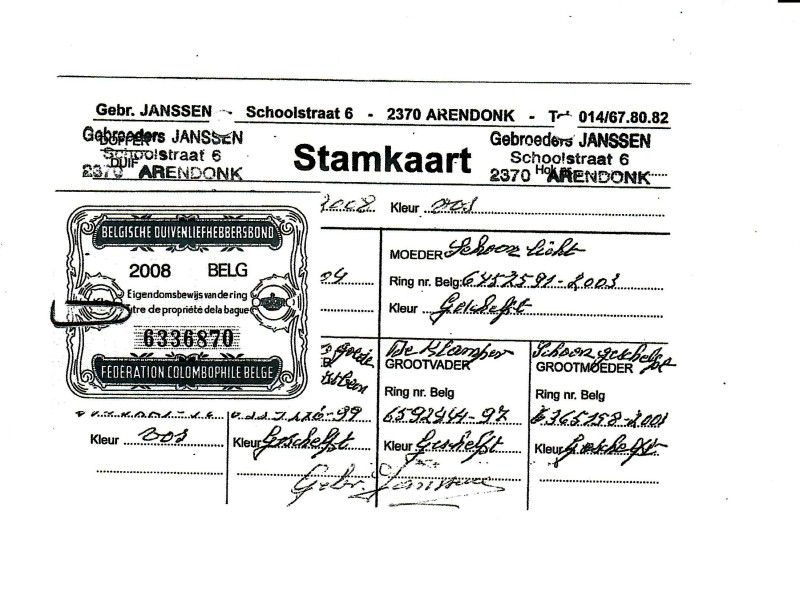 Gebr. JANSSEN - Schoolstraat 6 - 2370 ARENDONK - 014/67.80.82
Gebroeders JANSSEN
DOFFER
Schoolstraat 6
DUIF
2370 ARENDONK
Stamkaart
Gebroeders JANSSEN
Schoolstraat 6
2370 ARENDONK
2008 Kleur vos
BELGISCHE DUIVENLIEFHEBBERSBOND
2008 BELG
Eigendomsbewijs van de ring
Titre de propriété de la bague
6336870
FEDERATION COLOMBOPHILE BELGE
04
MOEDER Schoon licht
Ring nr. Belg: 6452591-2003
Kleur Geschelpt
goede
De Klamper
GROOTVADER
Ring nr. Belg
6592444-97
Kleur Geschelpt
Schoon geschelpt
GROOTMOEDER
Ring nr. Belg
6365158-2001
Kleur Geschelpt
Kleur vos
-99
Kleur Geschelpt
Gebr. Janssen